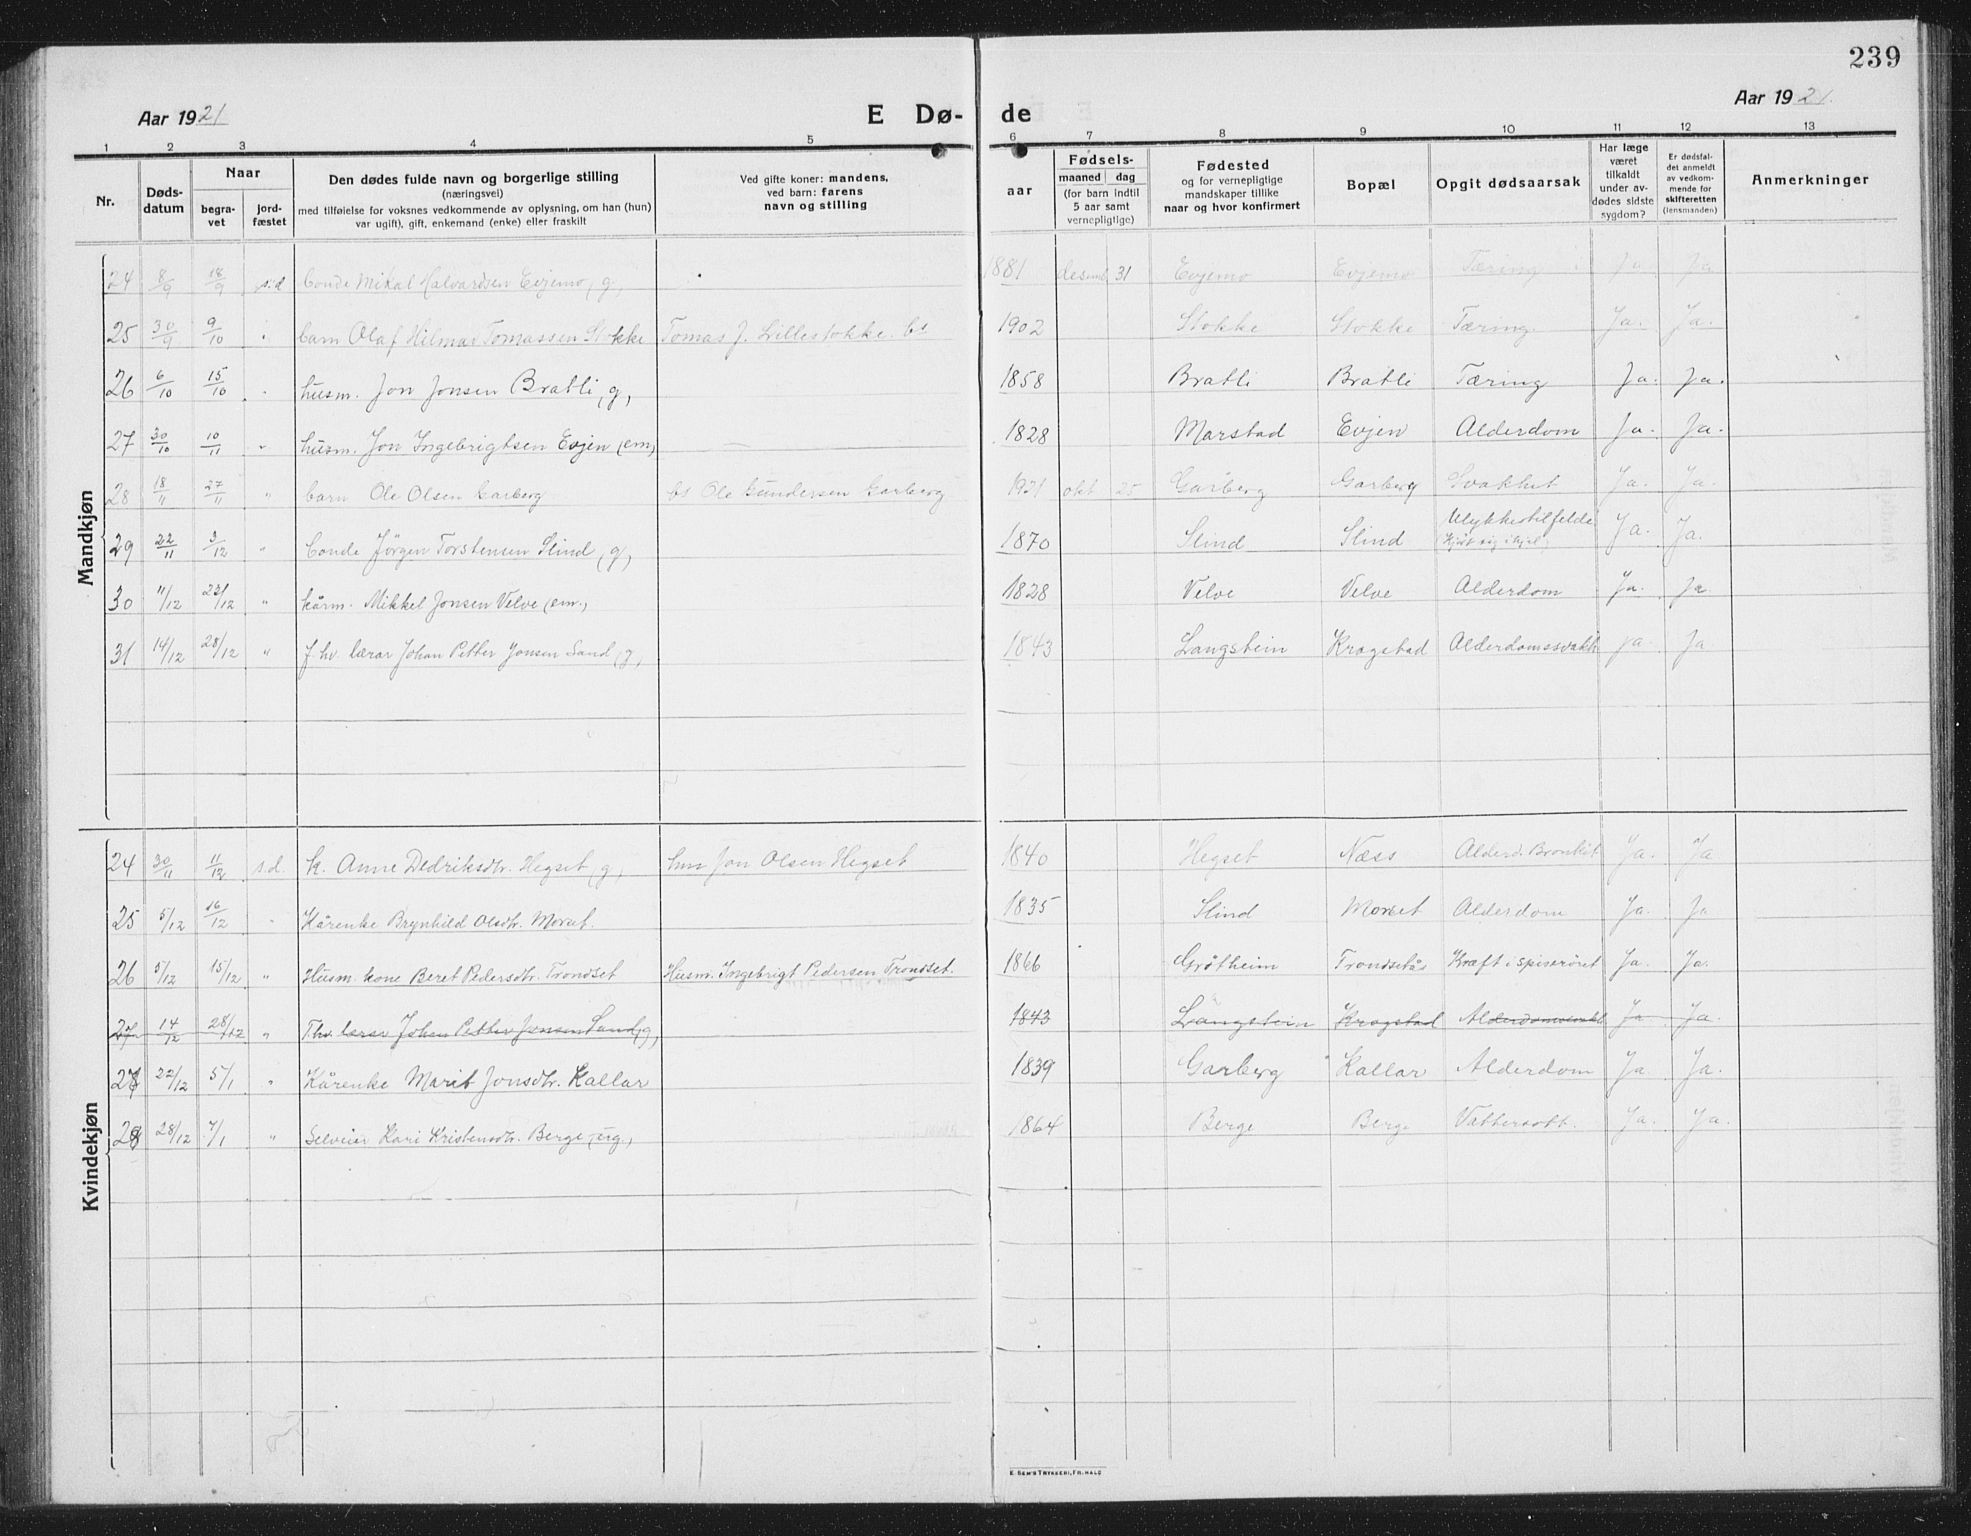 239
Aar 1921
E Dø-
de
Aar 1921.
1 2 3 4 5 6 7 8 9 10 11 12 13
Nr.
Døds-
datum
Naar
begra-
vet
jord-
fæstet
Den dødes fulde navn og borgerlige stilling
(næringsvei)
med tilføielse for voksnes vedkommende av oplysning, om han (hun)
var ugift), gift, enkemand (enke) eller fraskilt
Ved gifte koner: mandens,
ved barn: farens
navn og stilling
aar
Fødsels-
maaned dag
(for barn indtil
5 aar samt
vernepligtige)
Fødested
og for vernepligtige
mandskaper tillike
naar og hvor konfirmert
Bopæl
Opgit dødsaarsak
Har læge
været
tilkaldt
under av-
dødes sidste
sygdom?
Er dødsfal-
det anmeldt
av vedkom-
mende for
skifteretten
(lensmanden)
Anmerkninger
Mandkjøn
24 8/9 18/9 s.d bonde Mikal Halvardsen Evjemo, g, 1881 desemb 31 Evjemo Evjemo Tæring Ja Ja
25 30/9 9/10 " barn Olaf Hilmar Tomassen Stokke Tomas J. Lillestokke. bs 1902 Stokke Stokke Tæring. Ja. Ja.
26 6/10 15/10 " husm. Jon Jonsen Bratli, g, 1858 Bratli Bratli Tæring Ja. Ja.
27 30/10 10/11 " husm. Jon Ingebrigtsen Evjen (em) 1828 Marstad Evjen Alderdom Ja. Ja.
28 18/11 27/11 " barn Ole Olsen Garberg bs Ole Gundersen Garberg 1921 okt 25 Garberg Garberg Svakhet Ja. Ja.
29 22/11 3/12 " bonde Jörgen Torstensen Slind, g, 1870 Slind Slind Ulykkestilfelde Ja. Ja.
30 11/12 22/12 " kårm. Mikkel Jonsen Velve (em., 1828 Velve Velve Alderdom Ja. Ja
31 14/12 28/12 " f.hv. lærar Johan Petter Jonsen Sand, g, 1843 Langstein Kragstad Alderdomssvakh Ja. Ja
Kvindekjøn
24 30/11 11/12 s.d. k. Anne Dedriksdtr. Hegset, g, hm Jon Olsen Hegset 1840 Hegset Næss Alderd. Bronkit Ja. Ja
25 5/12 16/12 " Kårenke Brynhild Olsdtr. Morset. 1835 Slind Morset Alderdom Ja. Ja
26 5/12 15/12 " Husm. kone Beret Pedersdtr. Trondset Husm. Ingebrigt Pedersen Trondset. 1866 Gråtheim Trondsetås Kræft i spiserøret Ja. Ja.
27 14/12 28/12 " Fhv. lærar Johan Petter Jonsen Sand, g, 1843 Langstein Kragstad Alderdomsvakh Ja. Ja.
27 22/12 5/1 " Kårenke Marit Jonsdtr. Kallar 1839 Garberg Kallar Alderdom Ja Ja.
28 28/12 7/1 " Selveier Kari Kristensdtr. Berge, ug., 1864 Berge Berge Vattersott. Ja. Ja.
E. SEM'S TRYKKERI, FR.HALD